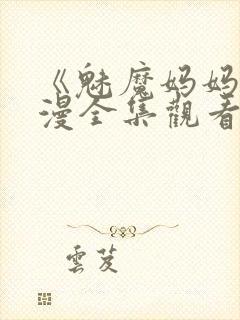 《魅魔妈妈
漫全集觀看
雲芨